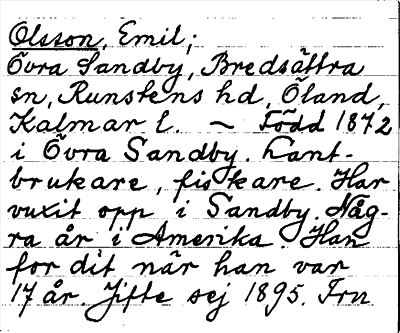 Olsson, Emil;
Övra Sandby, Bredsättra
sn, Runstens hd, Öland,
Kalmar l. — Född 1872
i Övra Sandby. Lant-
brukare, fiskare. Har
vuxit opp i Sandby. Någ-
ra år i Amerika. Han
for dit när han var
17 år. Jifte sej 1895. Frn